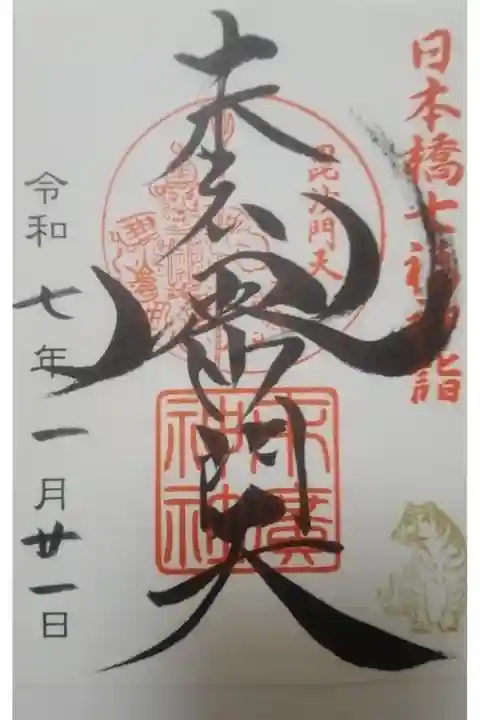 日本橋七福神詣
毘沙門天
毘沙門天
末廣
神社
令和七年一月廿一日